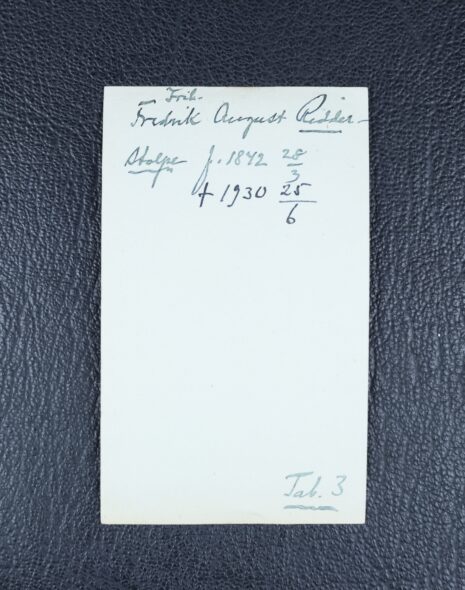 Frih.
Fredrik August Ridder-
Stolpe f. 1842 28/3
† 1930 25/6
Tab. 3